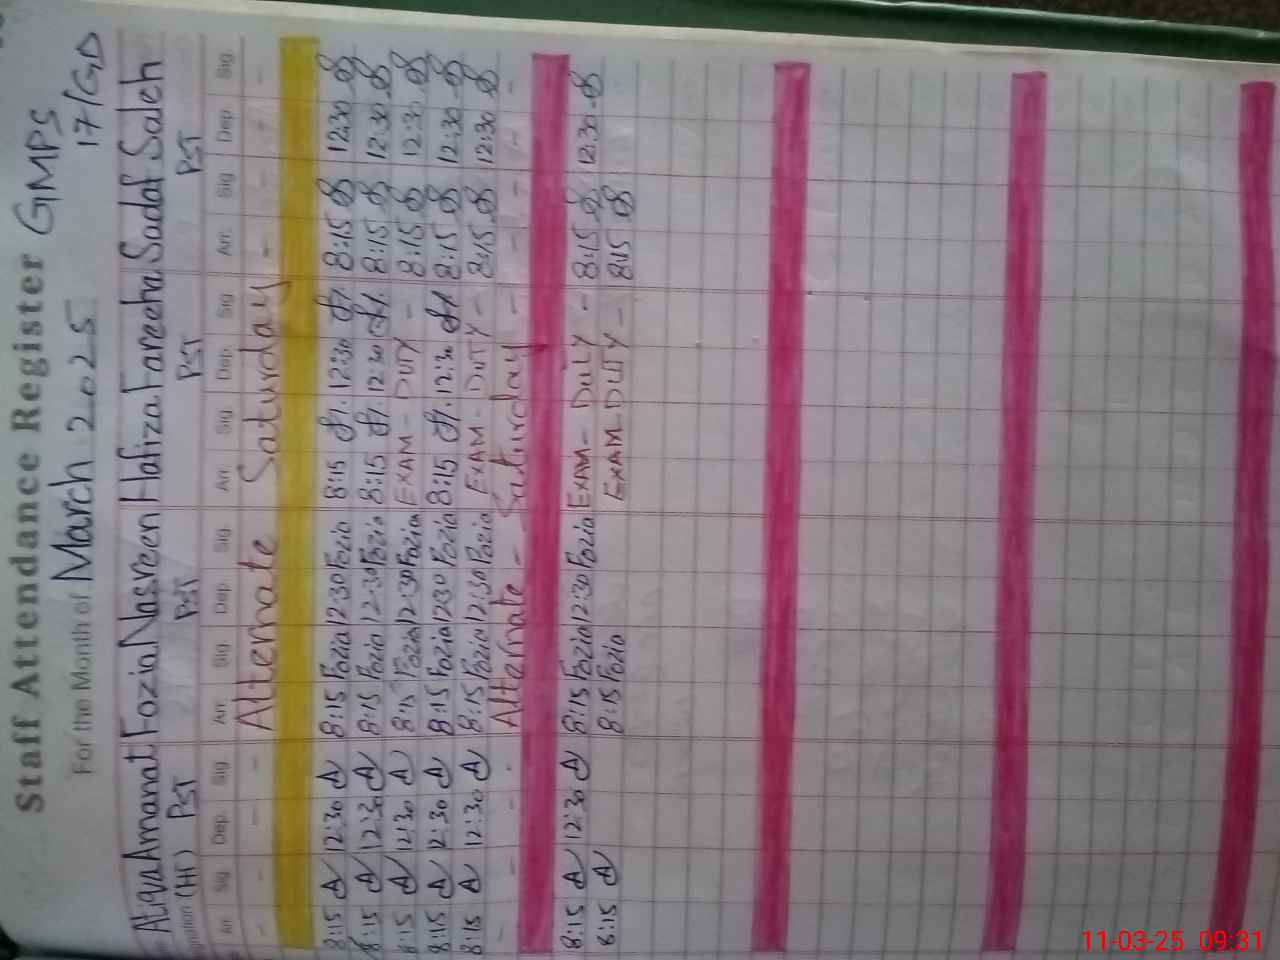 Staff Attendance Register GMPS
For the Month of March 2025 17/GD
Atiqa Amanat Fozia Nasreen Hafiza Fareeha Sadaf Saleh
(HT) PST PST PST PST
Arr Sig Dep. Sig Arr Sig Dep Sig Arr Sig Dep Sig Arr Sig Dep Sig
- - - - Alternate Saturday - - - -
8:15 A 12:30 A 8:15 Fozia 12:30 Fozia 8:15 12:30 8:15 12:30
8:15 A 12:30 A 8:15 Fozia 12:30 Fozia 8:15 12:30 8:15 12:30
8:15 A 12:30 A 8:15 Fozia 12:30 Fozia EXAM - DUTY - 8:15 12:30
8:15 A 12:30 A 8:15 Fozia 12:30 Fozia 8:15 12:30 8:15 12:30
8:15 A 12:30 A 8:15 Fozia 12:30 Fozia EXAM - DUTY - 8:15 12:30
- - - - Alternate - Saturday - - - - -
8:15 A 12:30 A 8:15 Fozia 12:30 Fozia EXAM - DUTY - 8:15 12:30
8:15 A 8:15 Fozia EXAM - DUTY - 8:15
11-03-25 09:31